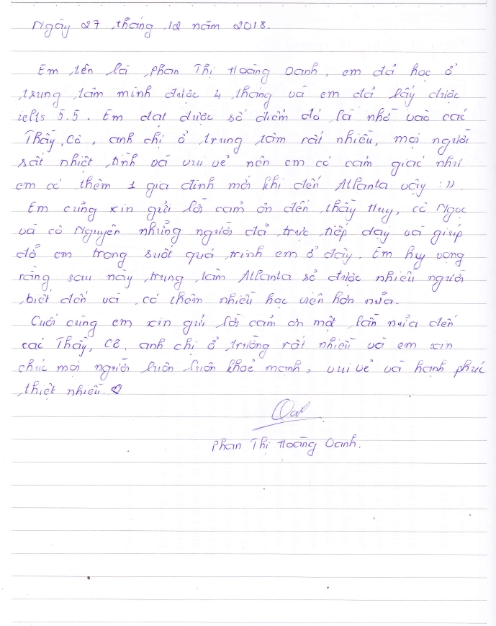 Ngày 27 tháng 12 năm 2018.
Em tên là Phan Thị Hoàng Oanh, em đã học ở
trung tâm mình được 4 tháng và em đã lấy được
ielts 5.5. Em đạt được số điểm đó là nhờ vào các
Thầy, Cô, anh chị ở trung tâm rất nhiều, mọi người
rất nhiệt tình và vui vẻ nên em có cảm giác như
em có thêm 1 gia đình mới khi đến Atlanta vậy :)).
Em cũng xin gửi lời cảm ơn đến thầy Huy, cô Ngọc
và cô Nguyên những người đã trực tiếp dạy và giúp
đỡ em trong suốt quá trình em ở đây. Em hy vọng
rằng sau này trung tâm Atlanta sẽ được nhiều người
biết đến và có thêm nhiều học viên hơn nữa.
Cuối cùng em xin gửi lời cảm ơn một lần nữa đến
các Thầy, Cô, anh chị ở trường rất nhiều và em xin
chúc mọi người luôn luôn khỏe mạnh, vui vẻ và hạnh phúc
thiệt nhiều ♡
Phan Thị Hoàng Oanh.